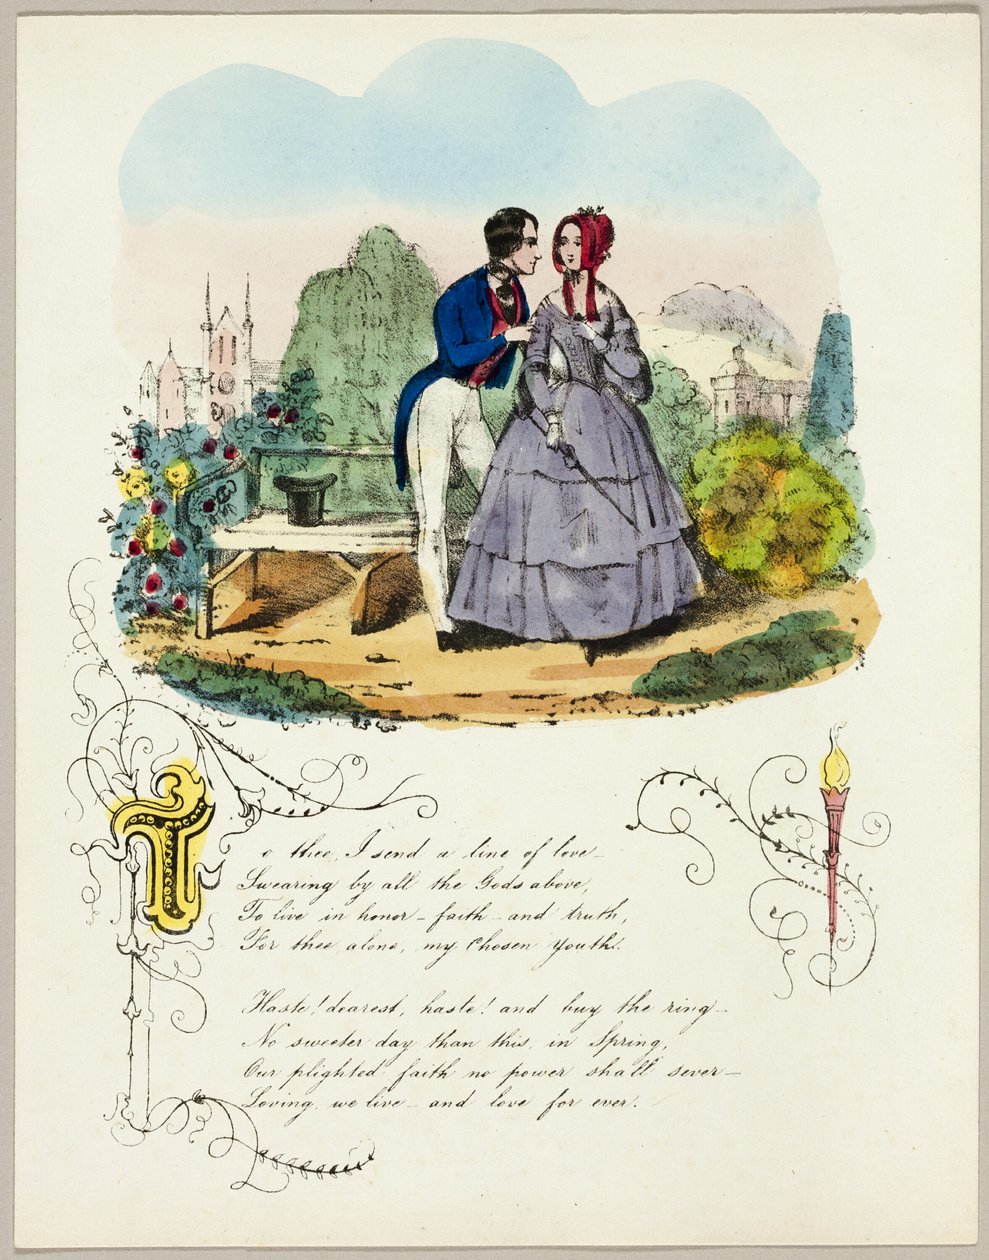 To thee, I send a line of love—
Swearing by all the Gods above,
To live in honor – faith – and truth,
For thee alone, my Chosen Youth.
Haste! dearest, haste! and buy the ring—
No sweeter day than this, in Spring,
Our plighted faith no power shall sever—
Loving, we live – and love for ever.